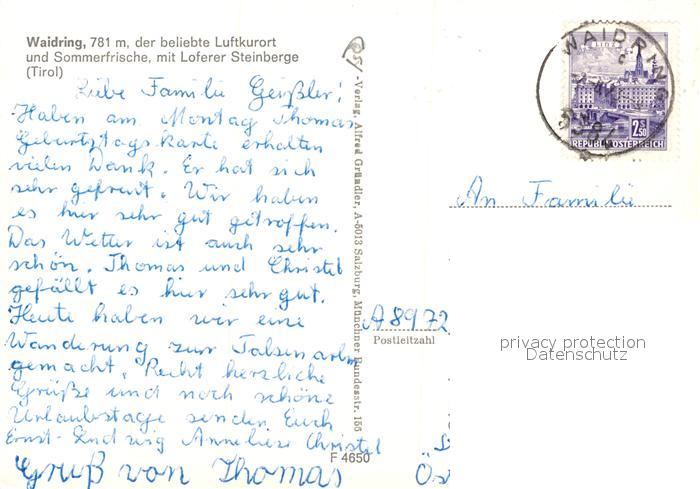 Waidring, 781 m, der beliebte Luftkurort
und Sommerfrische, mit Loferer Steinberge
(Tirol)
Liebe Familie Geißler!
Haben am Montag Thomas
Geburtstagskarte erhalten
vielen Dank. Er hat sich
sehr gefreut. Wir haben
es hier sehr gut getroffen.
Das Wetter ist auch sehr
schön. Thomas und Christel
gefällt es hier sehr gut.
Heute haben wir eine
Wanderung zur Talsen
gemacht. Recht herzliche
Grüße und noch schöne
Urlaubstage senden Euch
Ernst-Ludwig Anneliese Christel
Gruß von Thomas
-Verlag, Alfred Gründler, A-5013 Salzburg, Münchner Bundesstr. 156
F 4650
WAIDRING
LINZ
2 S 50
REPUBLIK ÖSTERREICH
An Familie
A 8972
Postleitzahl
privacy protection
Datenschutz
Ös